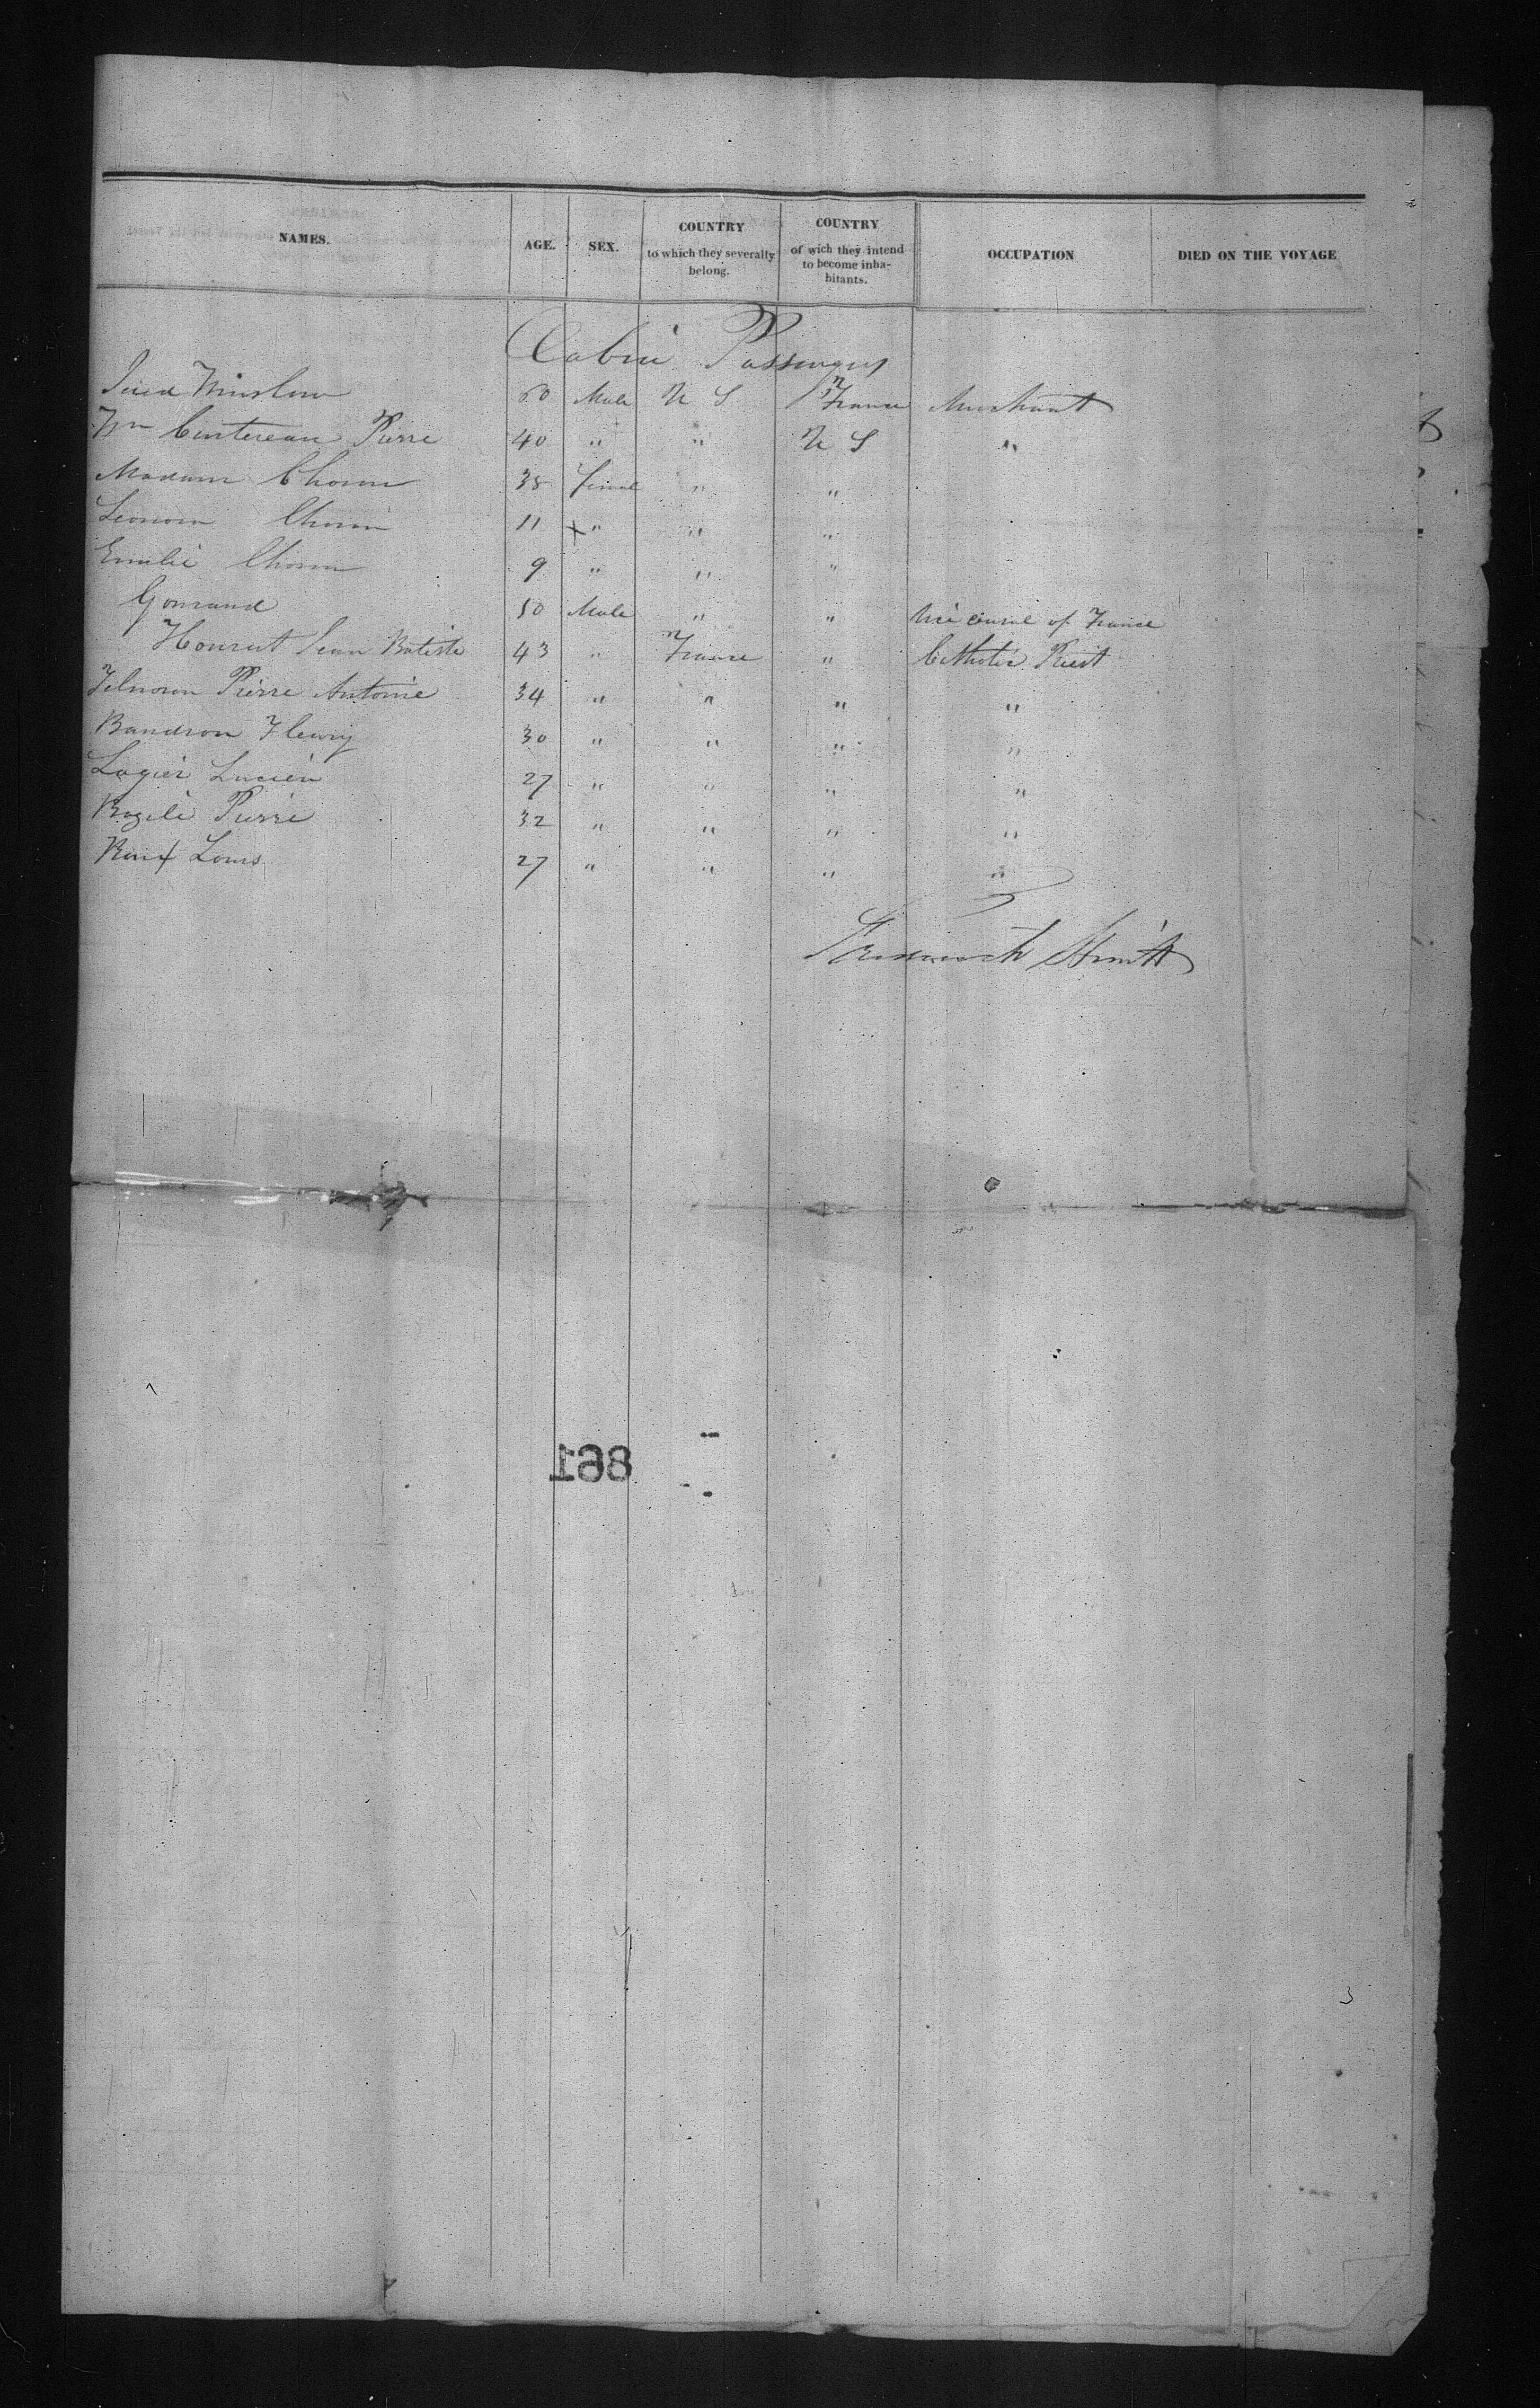 NAMES. AGE. SEX. COUNTRY to which they severally belong. COUNTRY of wich they intend to become inhabitants. OCCUPATION DIED ON THE VOYAGE
Cabin Passengers
Winslow 60 Male U S France Merchant
Pierre 40 " " U S "
Madam Choun 35 Femal " "
Choun 11 " " "
Emilie Choun 9 " " "
Gouraud 50 Male " " Vice Consul of France
Jean Batiste 43 " France " Catholic Priest
Pierre Antoine 34 " " " "
Baudron Fleury 30 " " " "
Lagier Lucien 27 " " " "
Pierre 32 " " " "
Roux Louis 27 " " " "
Smith
198